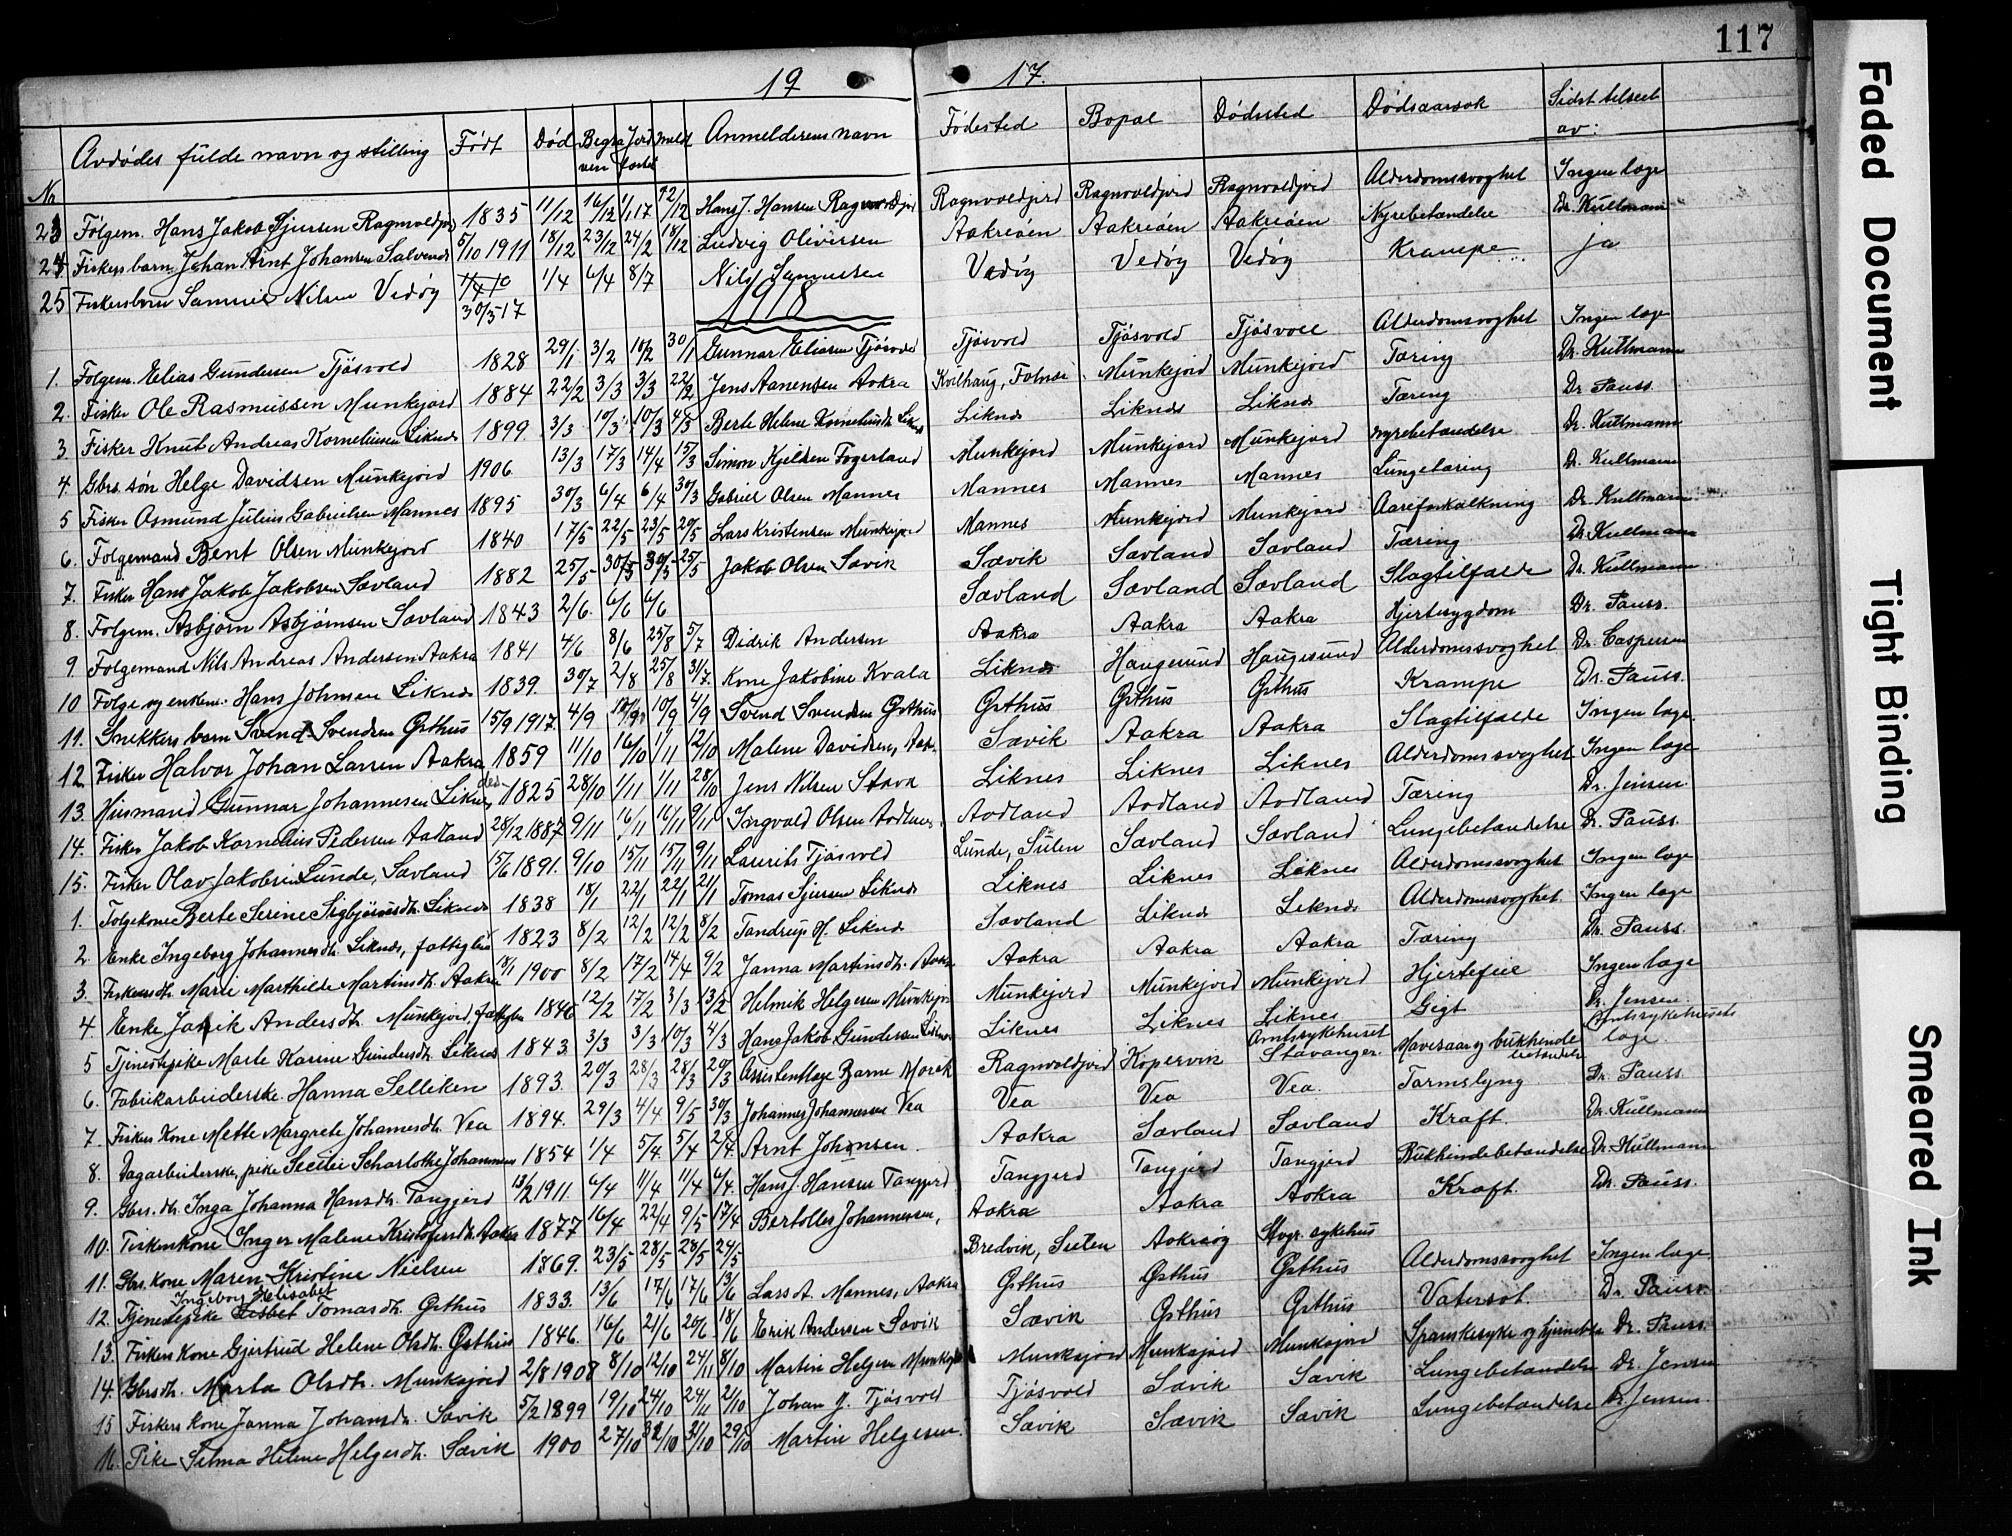 117
19 17.
No Avdødes fulde navn og stilling Født Død Begraven Jordfæstet meldt Anmelderens navn Fødested Bopæl Dødssted Dødsaarsak Sidst tilseet av:
23 Følgem. Hans Jakob Sjursen Ragnvaldjord 1835 11/12 16/12 1/1 17 12/12 Hans J. Hansen Ragnvaldjord Ragnvaldjord Ragnvaldjord Ragnvaldjord Alderdomssvaghet Ingen læge
24 Fiskers barn Johan Arnt Johansen Salvends 5/10 1911 18/12 23/12 24/2 18/12 Ludvig Oliversen Aakreøen Aakreøen Aakreøen Nyrebetændelse Dr. Kullmann
25 Fiskersbarn Samuel Nilsen Vedøy 30/5 17 1/4 6/4 8/7 Nils Samuelsen Vedøy Vedøy Vedøy Krampe ja
1918
1. Følgem. Elias Gundersen Tjøsvold 1828 29/1 3/2 10/2 30/1 Gunnar Eliasen Tjøsvold Tjøsvold Tjøsvold Tjøsvold Alderdomssvaghet Ingen læge
2. Fisker Ole Rasmussen Munkejord 1884 22/2 3/3 3/3 22/2 Jens Aanensen Aakra Kvilhaug, Munkejord Munkejord Tæring Dr. Kullmann
3 Fisker Knut Andreas Korneliusen Liknes 1899 3/3 10/3 10/3 4/3 Berte Helene Korneliusdtr. Liknes Liknes Liknes Liknes Tæring Dr. Pauss.
4. Gbrs. søn Helge Davidsen Munkejord 1906 13/3 17/3 14/4 15/3 Simon Kjeldsen Fogerland Munkejord Munkejord Munkejord nyrebetændelse Dr. Kullmann
5 Fisker Osmund Julius Gabrielsen Mannes 1895 30/3 6/4 6/4 30/3 Gabriel Olsen Mannes Mannes Mannes Mannes Lungetæring Dr. Kullmann
6. Følgemand Bent Olsen Munkejord 1840 17/5 22/5 23/5 20/5 Lars Kristensen Munkejord Mannes Munkejord Munkejord Aareforkalkning Dr. Kullmann
7. Fisker Hans Jakob Jakobsen Sævland 1882 25/5 30/5 30/5 25/5 Jakob Olsen Sævik Sævik Sævland Sævland Tæring Dr. Kullmann
8. Følgem. Asbjørn Asbjørnsen Sævland 1843 2/6 6/6 6/6 Sævland Sævland Sævland Slagtilfælde Dr. Kullmann
9 Følgemand Nils Andreas Andersen Aakra 1841 4/6 8/6 25/8 5/7 Didrik Andersen Aakra Aakra Aakra Hjertesygdom Dr. Pauss.
10 Følge og enkem. Hans Johnsen Liknes 1839. 30/7 2/8 25/8 31/7. Kone Jakobine Kvala Liknes Haugesund Haugesund Alderdomssvaghet Dr. Caspersen
11. Snekkers barn Svend Svendsen Østhus 15/9 1917. 4/9 10/9 10/9 4/9 Svend Svendsen Østhus Østhus Østhus Østhus Krampe Dr. Pauss.
12 Fisker Halvor Johan Larsen Aakra 1859 11/10 16/10 1/11 12/10 Malene Davidsen, Aakra Sævik Aakra Aakra Slagtilfælde Ingen læge.
13. Husmand Gunnar Johannesen Liknes 1825 28/10 1/11 1/11 28/10 Jens Nilsen Stava Liknes Liknes Liknes Alderdomssvaghet Ingen læge
14. Fisker Jakob Kornelius Pedersen Aadland 28/12 1887 9/11 16/11 16/11 9/11 Ingvald Olsen Aadland Aadland Aadland Aadland Tæring Dr. Jensen
15. Fisker Olav Jakobsen Lunde, Sævland 15/6 1891. 9/10 15/11 15/11 9/11 Laurits Tjøsvold Lunde, Sulen Sævland Sævland Lungebetændelse Dr. Pauss.
1. Følgekone Berte Serine Sigbjørnsdtr. Liknes 1838 18/1 22/1 22/1 21/1 Tomas Sjursen Liknes Liknes Liknes Liknes Alderdomssvaghet Ingen læge
2. Enke Ingeborg Johannesdtr. Liknes, fattiglem 1823 8/2 12/2 12/2 8/2 Tandrup H. Liknes Sævland Liknes Liknes Alderdomssvaghet Ingen læge
3. Fiskersdtr. Marie Marthilde Martinsdtr. Aakra 18/1 1900 8/2 17/2 14/4 9/2 Janna Martinsdtr. Aakra Aakra Aakra Aakra Tæring Dr. Pauss.
4. Enke Janik Andersdtr. Munkejord, fattiglem 1846 12/2 17/2 3/3 13/2 Helmik Helgesen Munkejord Munkejord Munkejord Munkejord Hjertefeil Ingen læge
5 Tjenestepike Marte Karine Gundersdtr. Liknes 1843. 3/3 3/3 10/3 4/3 Hans Jakob Gundersen Liknes Liknes Liknes Liknes Gigt Dr. Jensen.
6. Fabrikarbeiderske Hanna Selliken 1893. 20/3 28/3 28/3 20/3 Assistentlæge Barne Morek Ragnvaldjord Kopervik Amtssykehuset Stavanger. Mavesaar og bukhindebetændelse Amtssykehusets læge.
7. Fiskers kone Mette Margrete Johannesdtr. Vea 1894. 29/3 4/4 9/5 30/3 Johannes Johannessen Vea Vea Vea Vea. Tarmslyng Dr. Pauss.
8. Dagarbeiderske, pike Secilie Scharlotte Johannessen 1854 1/4 5/4. 5/4 2/4. Arnt Johansen. Aakra Sævland Sævland Kræft. Dr. Kullmann
9. Gbrs. dtr. Inga Johanna Hansdtr. Tangjerd 13/2 1911. 6/4 11/4 11/4 6/4. Hans J. Hansen Tangjerd Tangjerd Tangjerd Tangjerd Bukhindebetændelse Dr. Kullmann
10. Fiskerkone Inger Malene Kristofersdtr. Aakra 1877 16/4 22/4 9/5 17/4 Bertolles Johannessen, Aakra Aakra Aakra Kræft. Dr. Pauss.
11. Gbrs. kone Maren Kristine Nielsen 1869. 23/5 28/5 28/5 24/5 Bredvik, Sulen Aakreøy Stvgr. sykehus
12. Tjenestepike Lisbet Ingeborg Helisabet Tomasdtr. Østhus 1833. 13/6 17/6 17/6 13/6 Lars A. Mannes, Aakra Østhus Østhus Østhus Alderdomssvaghet Ingen læge.
13. Fiskers kone Gjertrud Helene Olsdtr. Østhus 1846. 16/6 21/6 20/6 18/6 Erik Andersen Sævik Sævik Østhus Østhus Vatersot. Dr. Pauss.
14. Gbrsdtr. Marta Olsdtr. Munkejord 2/8 1908 8/10 12/10 24/11 8/10 Martin Helgesen Munkejord Munkejord Munkejord Munkejord Spanskesyke og Dr. Pauss.
15 Fiskers kone Janna Johansdtr. Sævik 5/2 1899 19/10 24/10 24/11 21/10 Johan J. Tjøsvold Tjøsvold Sævik Sævik Lungebetændelse Dr. Jensen
16. Pike Selma Helene Helgesdtr. Sævik 1900 27/10 31/10 31/10 29/10 Martin Helgesen. Sævik Sævik Sævik Lungebetændelse Dr. Jensen.
Faded Document
Tight Binding
Smeared Ink